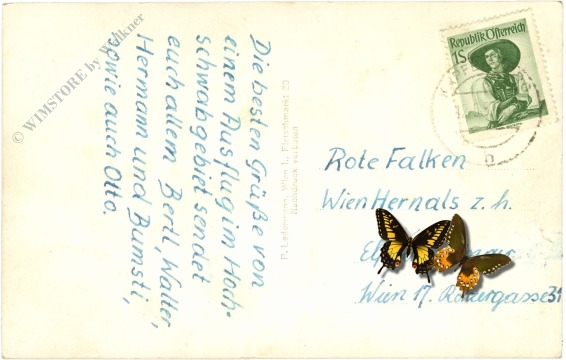 Die besten Grüße von
einem Ausflug im Hoch-
schwabgebiet sendet
euch allem Bertl, Walter,
Hermann und Bumsti,
sowie auch Otto.
P. Ledermann, Wien I., Fleischmarkt 20
Nachdruck verboten
Republik Österreich
1S
Rote Falken
Wien Hernals z. h.
Wien 17. 31
© WIMSTORE by Wallkner